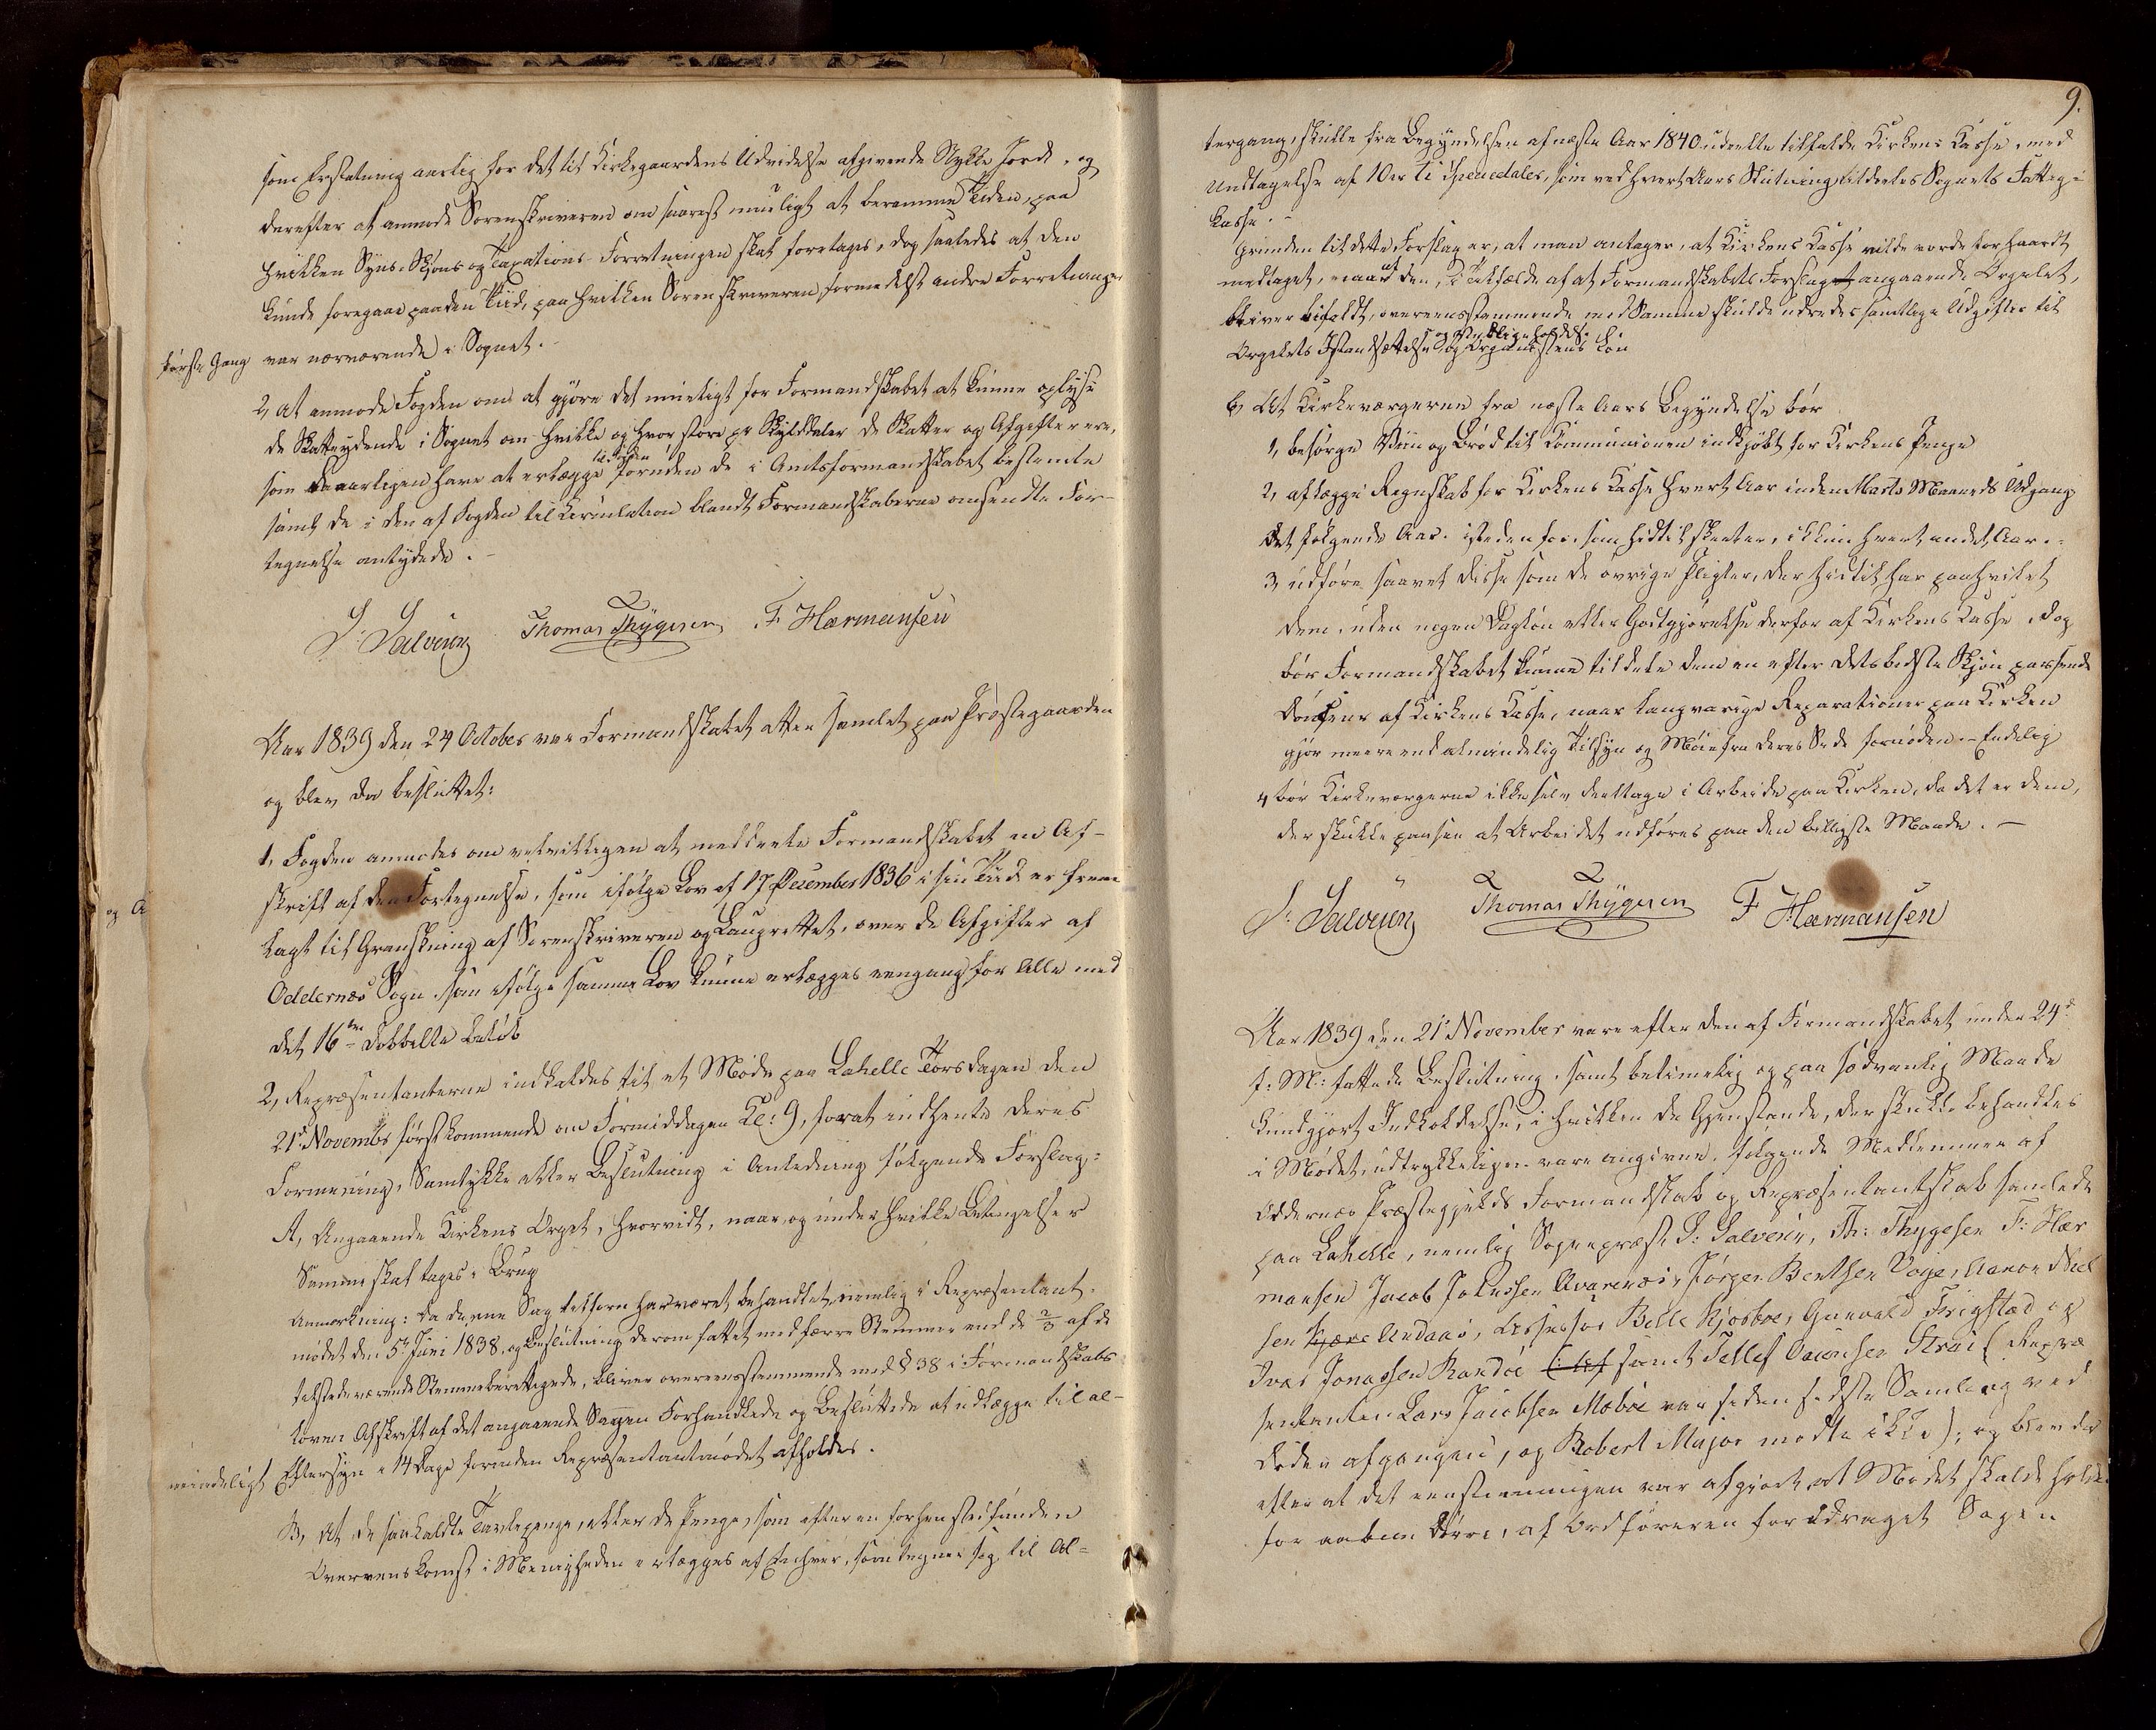 som Erstatning aarlig for det til Kirkegaardens Udvidelse afgivende Stykke Jord, og
derefter at anmode Sorenskriveren om snarest mueligt at beramme Tiden, paa
hvilken Syns- Skjøns og Taxations-Forretningen skal foretages, dog saaledes at den
kunde foregaae paa den Tiid, paa hvilken Sorenskriveren formedelst andre Forretninger
første Gang var nærværende i Sognet.
2, at anmode Fogden om at gjøre det mueligt for Formandskabet at kunne oplyse
de Skatteydende i Sognet om hvilke og hvor store pr Skylddaler de Skatter og Afgifter ere,
som de aarligen have at erlægge foruden de i Amtsformandskabet bestemte
samt de i den af Fogden til Circulation blandt Formandskaberne omsendte For-
tegnelse antydede. -
S. Salvesen Thomas Thygesen F. Hærmansen
Aar 1839 den 24 October var Formandskabet atter samlet paa Præstegaarden
og blev da besluttet:
1, Fogden anmodes om velvilligen at meddeele Formandskabet en Af-
skrift af den Fortegnelse, som ifølge Lov af 17 December 1836 i sin Tiid er frem
lagt til Granskning af Sorenskriveren og Laugrettet, over de Afgifter af
Oddernæs Sogn som ifølge samme Lov kunne erlægges eengang for Alle med
det 16de dobbelte Beløb
2, Repræsentanterne indkaldes til et Møde paa Lahelle Torsdagen den
21de Novembr førstkommende om Formiddagen Kl: 9, forat indhente deres
Formening, Samtykke eller Beslutning i Anledning følgende Forslag:
A, Angaaende Kirkens Orgel, hvorvidt, naar, og under hvilke Betingelser
Samme skal tages i Brug
Anmærkning: Da denne Sag tilforn har været behandlet, nemlig i Repræsentant-
mødet den 5te Juni 1838, og Beslutning derom fattet med færre Stemmer end de 2/3 af de
tilstedeværende Stemmeberettigede, bliver overeensstemmende med § 38 i Formandskabs
loven Afskrift af det angaaende Sagen Forhandlede og Besluttede at udlægge til al-
mindeligt Eftersyn i 14 Dage forinden Repræsentantmødet afholdes.
B, At de saakaldte Tavlepenge, eller de Penge, som efter en forhen stedfunden
Overeenskomst i Menigheden erlægges af Enhver, som tegner sig til Al-
og A
9.
tergang, skulle fra Begyndelsen af næste Aar 1840 udeelte tilfalde Kirkens Kasse, med
Undtagelse af 10 er ti Speciedaler, som ved hvert Aars Slutning tildeeles Sognets Fattig-
kasse. -
Grunden til dette Forslag er, at man antager, at Kirkens Kasse vilde vorde for haardt
medtaget, naar den, i Tilfælde af at Formandskabets Forslag angaaende Orgelet,
bliver bifaldt, overeensstemmende med Samme skulde udrede samtlige Udgifter til
Orgelets Istandsættelse og Vedligeholdelse og Organistens Løn
C, At Kirkeværgerne fra næste Aars Begyndelse bør
1, besørge Viin og Brød til Communionen indkjøbt for Kirkens Penge
2, aflægge Regnskab for Kirkens Kasse hvert Aar inden Marts Maaneds Udgang
det følgende Aar istedenfor, som hidtil skeeter, ikkun hvert andet Aar.
3, udføre saavel disse som de øvrige Pligter, der hidtil har paahvilet
dem, uden nogen Dagløn eller Godtgjørelse derfor af Kirkens Kasse, dog
bør Formandskabet kunne tildele dem en efter dets bedste Skjøn passende
Douceur af Kirkens Kasse, naar langvarige Reparationer paa Kirken
gjør meere end almindelig Tilsyn og Møie fra deres Side fornøden. - Endelig
4 bør Kirkeværgerne ikke selv deeltage i Arbeide paa Kirken, da det er dem,
der skulle paasee at Arbeidet udføres paa den billigste Maade. -
S. Salvesen Thomas Thygesen F. Hærmansen
Aar 1839 den 21de November vare efter den af Formandskabet under 24de
f: M: fattede Beslutning, samt betimelig og paa sædvanlig Maade
kundgjort Indkaldelse, i hvilken de Gjenstande, der skulle behandles
i Mødet, udtrykkeligen vare angivne, følgende Medlemmer af
Oddernæs Præstegjelds Formandskab og Repræsentantskab samlede
paa Lahelle, nemlig Sognepræst S: Salvesen, Th: Thygesen F: Hær
mansen Jacob Jochussen Qvarenæs, Jørgen Bentsen Voie, Aanon Niel
sen Andaas, Assessor Kjosboe, Gunvald Frigstad og
Iver Jonassen Randøe samt Tellef Strai (Repræ
sentanten Lars Jacobsen Mæbøe var siden sidste Samling ved
Døden afgangen, og Robert Major mødte ikke); og blev da
efter at det eenstemmigen var afgjort, at Mødet skulde holdes
for aabne Døre, af Ordføreren foredraget Sagen